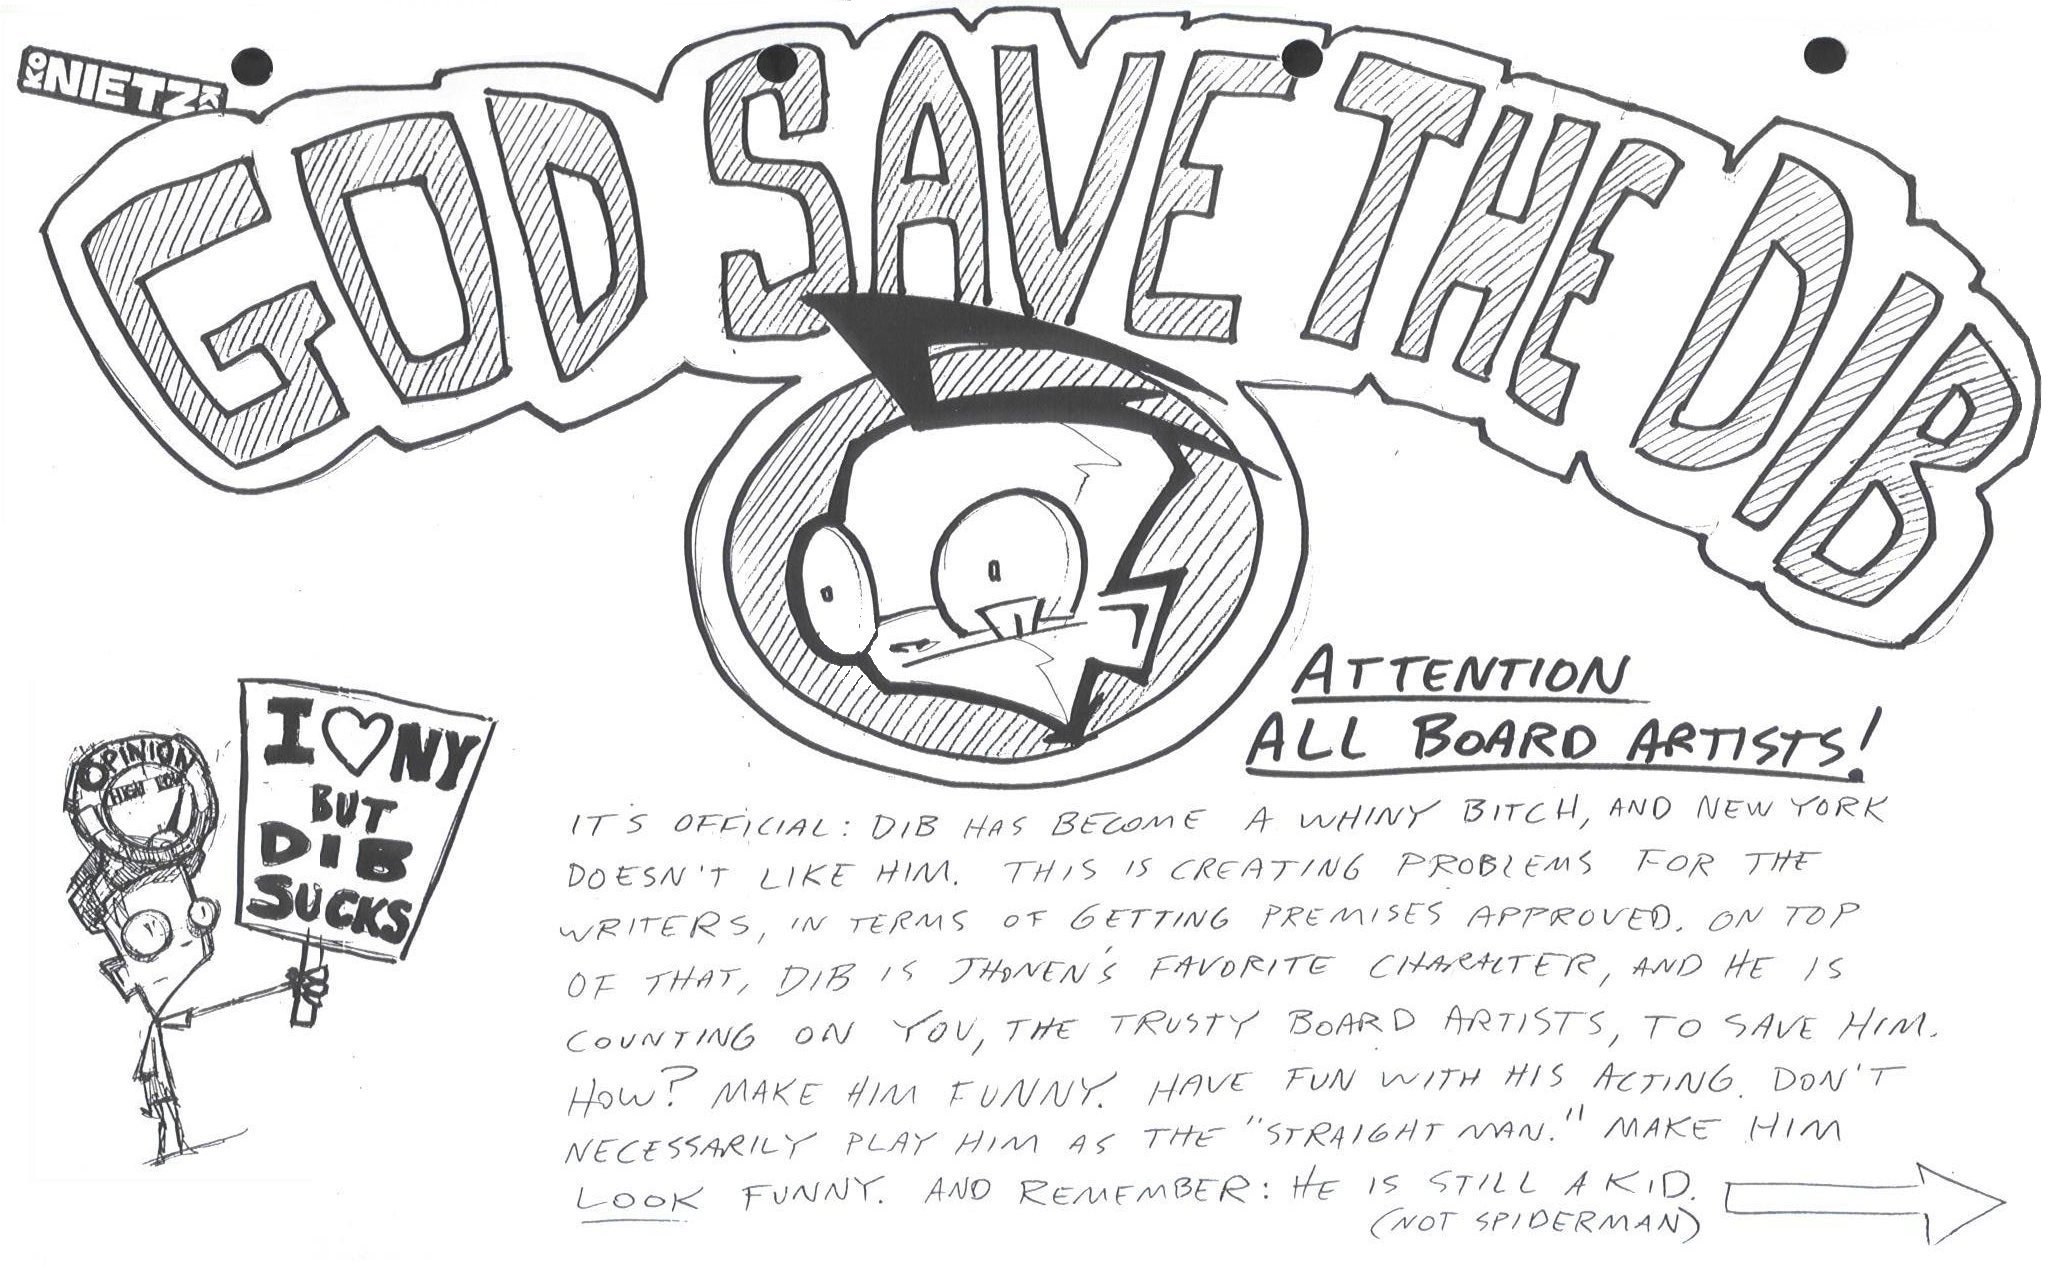 KONIETZKO
GOD SAVE THE DIB
ATTENTION
ALL BOARD ARTISTS!
OPINION
I ♡ NY
BUT
DIB
SUCKS
IT'S OFFICIAL: DIB HAS BECOME A WHINY BITCH, AND NEW YORK
DOESN'T LIKE HIM. THIS IS CREATING PROBLEMS FOR THE
WRITERS, IN TERMS OF GETTING PREMISES APPROVED. ON TOP
OF THAT, DIB IS JHONEN'S FAVORITE CHARACTER, AND HE IS
COUNTING ON YOU, THE TRUSTY BOARD ARTISTS, TO SAVE HIM.
HOW? MAKE HIM FUNNY. HAVE FUN WITH HIS ACTING. DON'T
NECESSARILY PLAY HIM AS THE "STRAIGHT MAN." MAKE HIM
LOOK FUNNY. AND REMEMBER: HE IS STILL A KID.
(NOT SPIDERMAN)